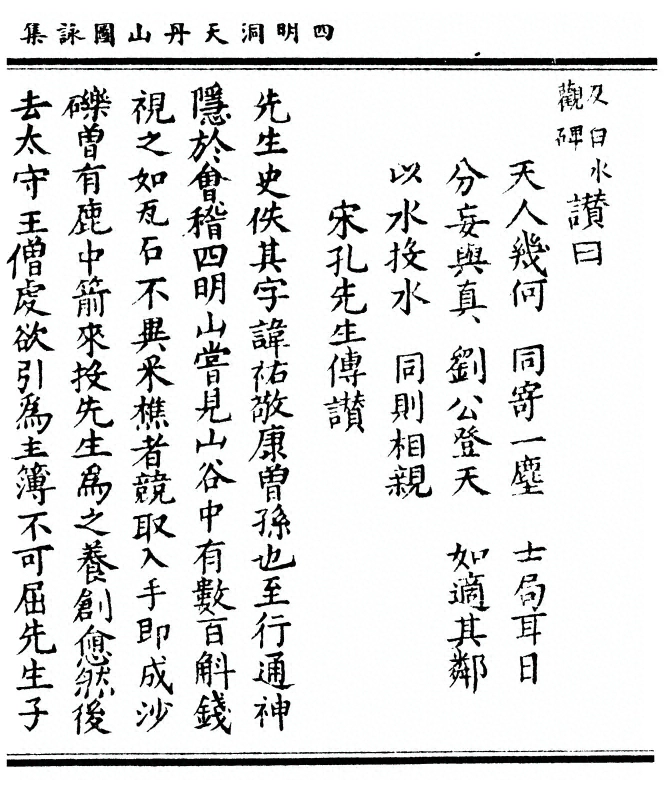 四明洞天丹山圖詠集
及白水
觀碑
讃曰
天人幾何　同寄一塵　士局耳日
分妄與真、劉公登天　如適其鄰
以水投水　同則相親
宋孔先生傳讃
先生史佚其字諱祐敬康曾孫也至行通神
隱於會稽四明山嘗見山谷中有數百斛錢
視之如瓦石不異采樵者競取入手即成沙
礫曾有鹿中箭來投先生爲之養創愈然後
去太守王僧虔欲引爲主簿不可屈先生子